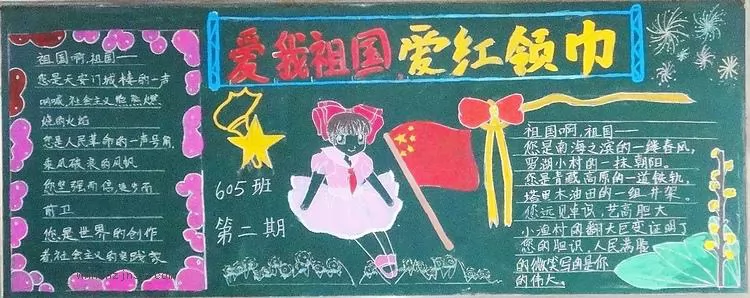 爱我祖国 爱红领巾
祖国啊,祖国——
您是天安门城楼的一声
呐喊,社会主义熊熊燃
烧的火焰
您是人民革命的一声号角,
乘风破浪的风帆
您坚强而倍,进步而
前卫
您是世界的创作
者,社会主义的实践家
605班
第二期
祖国啊,祖国——
您是南海之滨的一缕春风,
罗湖小村的一抹朝阳。
您是青藏高原的一道铁轨,
塔里木油田的一组井架。
您远见卓识,艺高胆大
小渔村的翻天巨变证明了
您的胆识,人民满脸
的微笑写的是你
的伟大。